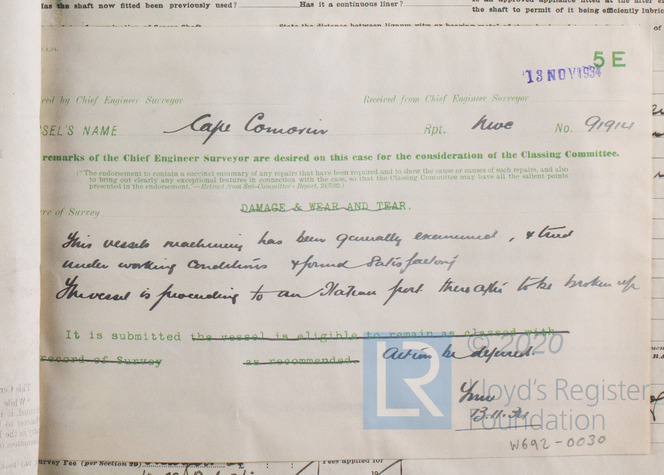 Has the shaft now fitted been previously used?
Has it a continuous liner?
the shaft to permit of it being efficiently lubric
5 E
13 NOV 1934
red by Chief Engineer Surveyor
Received from Chief Engineer Surveyor
SEL'S NAME Cape Comorin Rpt. Nwc No. 91914
remarks of the Chief Engineer Surveyor are desired on this case for the consideration of the Classing Committee.
("The endorsement to contain a succinct summary of any repairs that have been required and to show the cause or causes of such repairs, and also
to bring out clearly any exceptional features in connection with the case, so that the Classing Committee may have all the salient points
presented in the endorsement."—Extract from Sub-Committee's Report,
re of Survey DAMAGE & WEAR AND TEAR.
This vessels machinery has been generally examined, & tried
under working conditions & found satisfactory
The vessel is proceeding to an Italian port thereafter to be broken up
It is submitted the vessel is eligible to remain as classed with
record of Survey as recommended. Action be deferred.
© 2020
LR Lloyd's Register
Foundation
W692-0030
urvey Fee (per Section 29)
Fees applied for